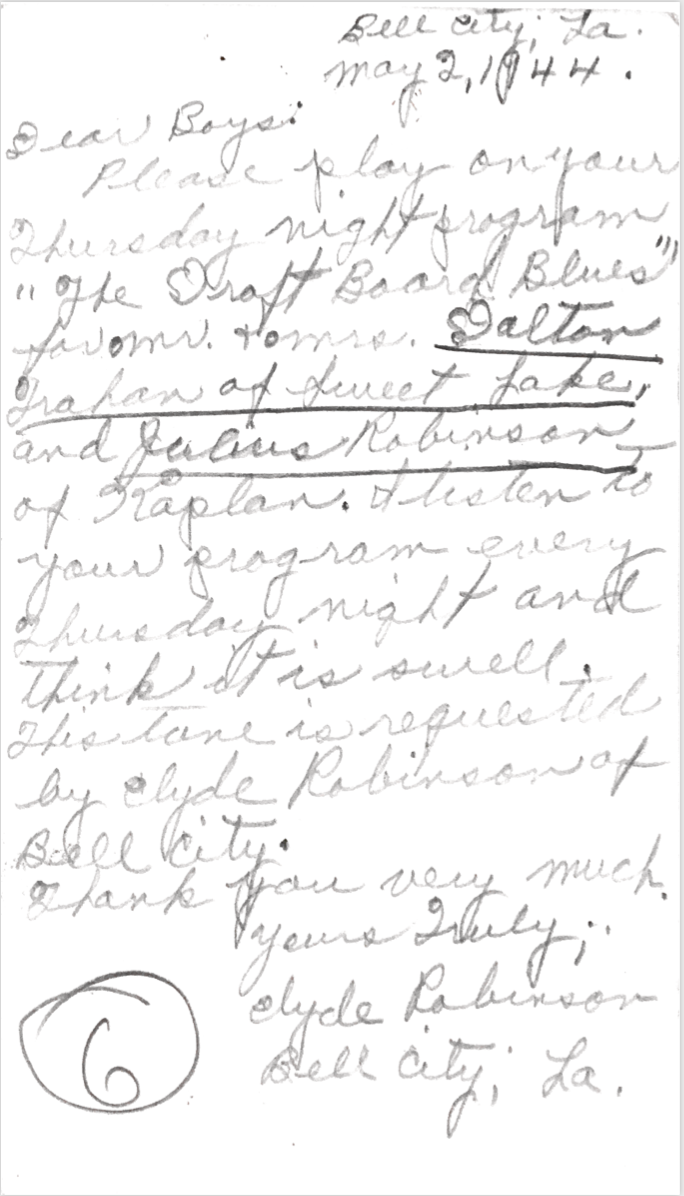 Bell City, La.
May 2, 1944.
Dear Boys:
Please play on your
Thursday night program
"The Draft Board Blues"
for mr. + mrs. Dalton
Trahan of Sweet Lake,
and Julius Robinson
of Kaplan. I listen to
your program every
Thursday night and
think it is swell.
This tune is requested
by Clyde Robinson of
Bell City.
Thank you very much.
Yours Truly,
Clyde Robinson
Bell City, La.
6